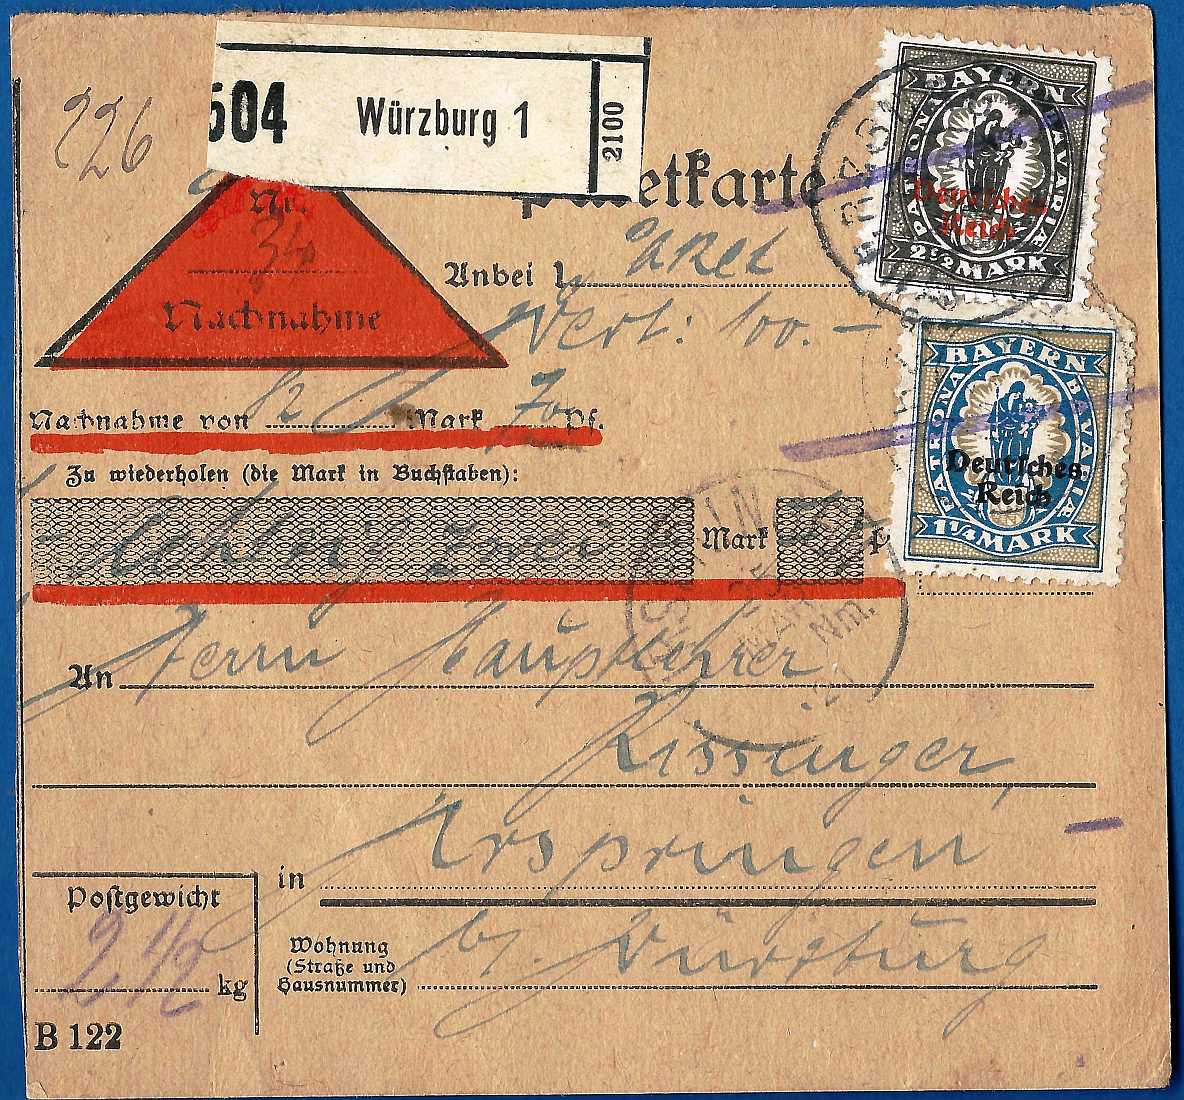 226
504 Würzburg 1 2100
etkarte
Nr.
34
Nachnahme
Anbei 1 Paket
Wert: 100.–
Nachnahme von 82 Mark 70 Pf.
Zu wiederholen (die Mark in Buchstaben):
Achtzig zwei Mark
An Herrn Hauptlehrer
Kissinger,
in Urspringen
Wohnung
(Straße und
Hausnummer)
b/ Würzburg
Postgewicht
2 1/2 kg
B 122
BAYERN
PATRONA BAVARIÆ
Deutsches
Reich
2½ MARK
BAYERN
PATRONA BAVARIÆ
Deutsches
Reich
1¼ MARK
25
Nm.